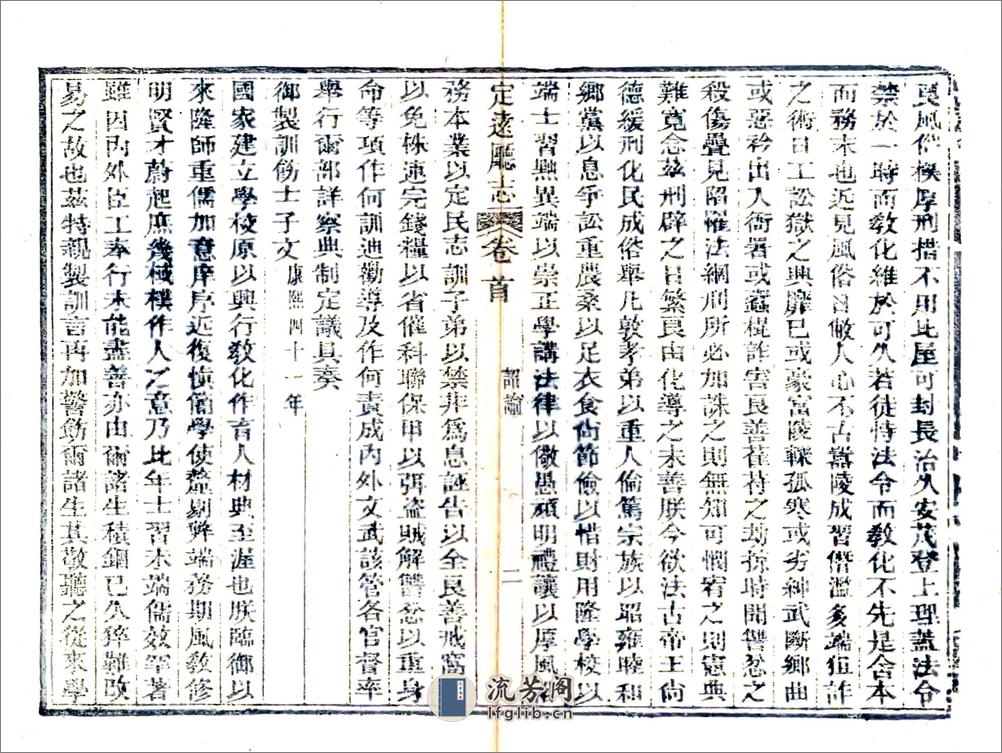 良風俗樸厚刑措不用比屋可封長治久安茂登上理蓋法令
禁於一時而教化維於可久若徒恃法令而教化不先是舍本
而務末也近見風俗日敝人心不古囂陵成習僭濫多端狙詐
之術日工訟獄之興靡已或豪富陵轢孤寒或劣紳武斷鄉曲
或惡衿出入衙署或蠹棍詐害良善萑苻之刦掠時聞讐忿之
殺傷疊見陷罹法網刑所必加誅之則無知可憫宥之則憲典
難寛念茲刑辟之日繁良由化導之未善朕今欲法古帝王尚
德緩刑化民成俗舉凡敦孝弟以重人倫篤宗族以昭雍睦和
鄉黨以息爭訟重農桑以足衣食尚節儉以惜財用隆學校以
端士習黜異端以崇正學講法律以儆愚頑明禮讓以厚風俗
定遠廳志 卷首 詔諭 二
務本業以定民志訓子弟以禁非爲息誣告以全良善戒窩逃
以免株連完錢糧以省催科聯保甲以弭盜賊解讐忿以重身
命等項作何訓迪勸導及作何責成內外文武該管各官督率
舉行爾部詳察典制定議具奏
御製訓飭士子文康熙四十一年
國家建立學校原以興行教化作育人材典至渥也朕臨御以
來隆師重儒加意庠序近復慎簡學使釐剔弊端務期風教修
明賢才蔚起庶幾棫樸作人之意乃比年士習未端儒效罕著
雖因內外臣工奉行未能盡善亦由爾諸生積錮已久猝難改
易之故也茲特親製訓言再加警飭爾諸生其敬聽之從來學
流芳閣
lfglib.cn